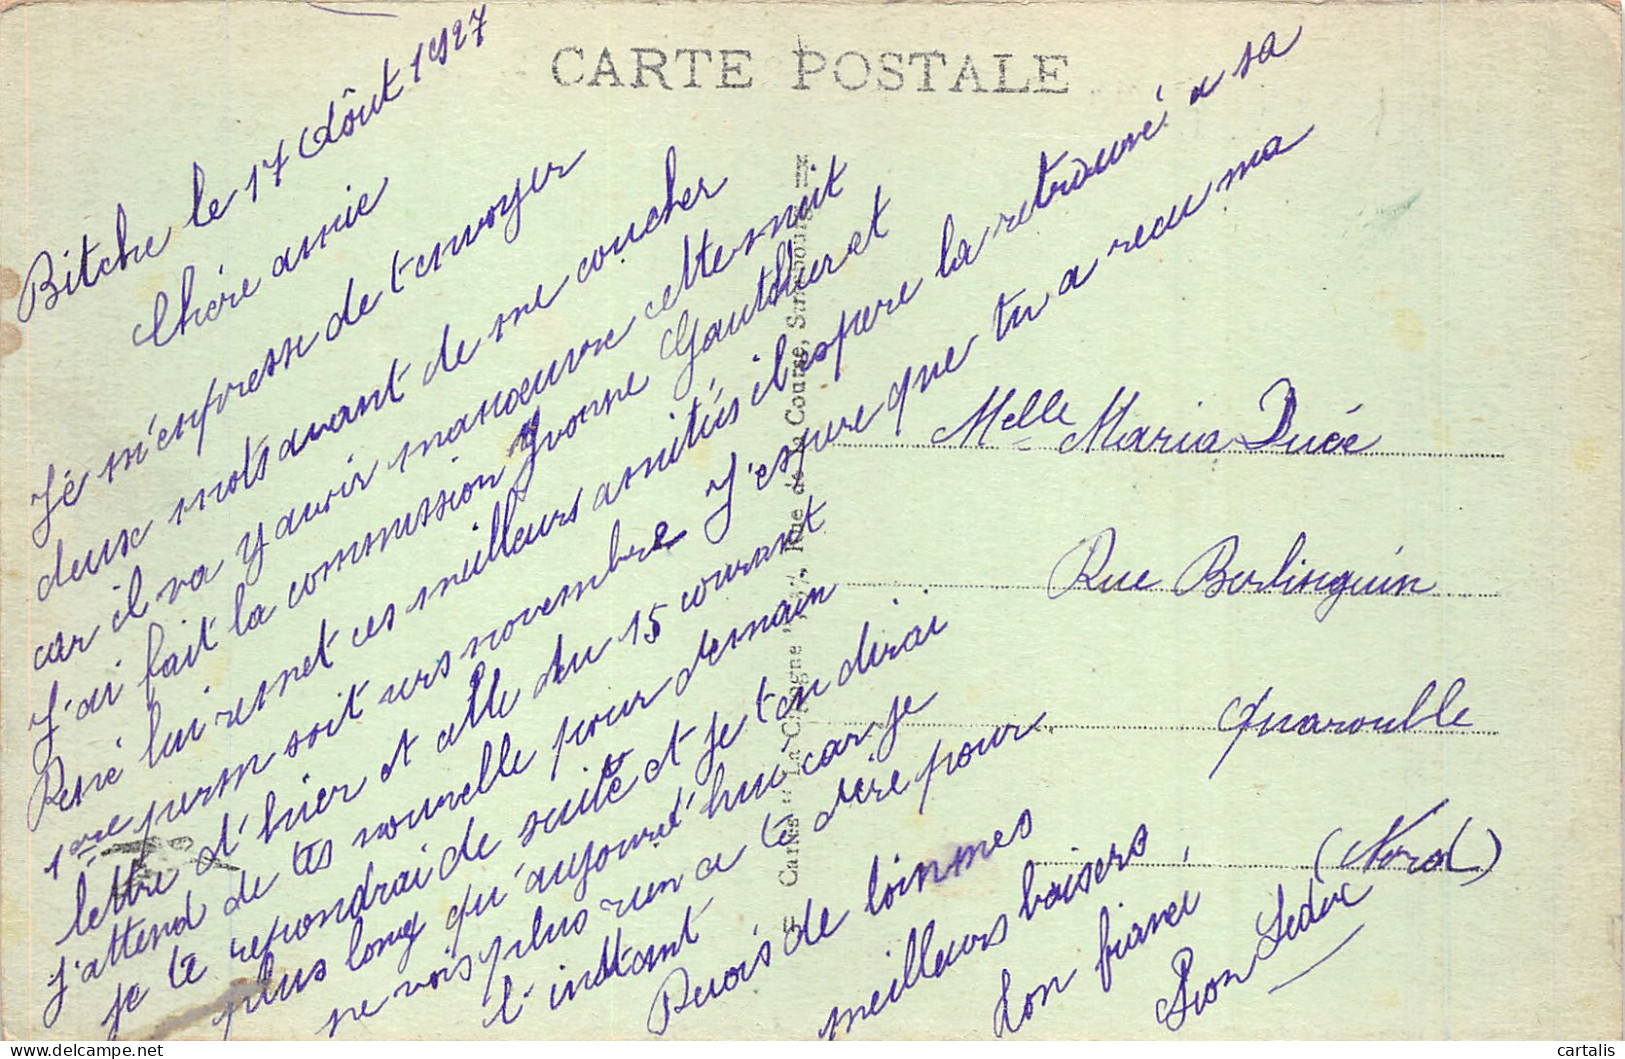 CARTE POSTALE
Bitche le 17 Aôut 1927
Chère amie
Je m'enpresse de t'envoyer
deux mots avant de me coucher
car il va y avoir manœuvre cette nuit
J'ai fait la commission Yvonne Gauthier et
René lui remet ces meilleurs amitiés il espere la retrouvé a sa
1ere perm soit vers novembre J'espere que tu a recu ma
lettre d'hier et celle du 15 courant
J'attend de tes nouvelle pour demain
je te repondrai de suite et je t'en dirai
plus long qu'aujourd'hui car je
ne vois plus rien a te dire pour
l'instant
Recois de loin mes
meilleurs baisers
Ton fiancé
Léon
Melle Maria Ducé
Rue Berlinguin
Quarouble
(Nord)
Cartes "La Cigogne
Rue de la Course, Strasbourg
cartalis